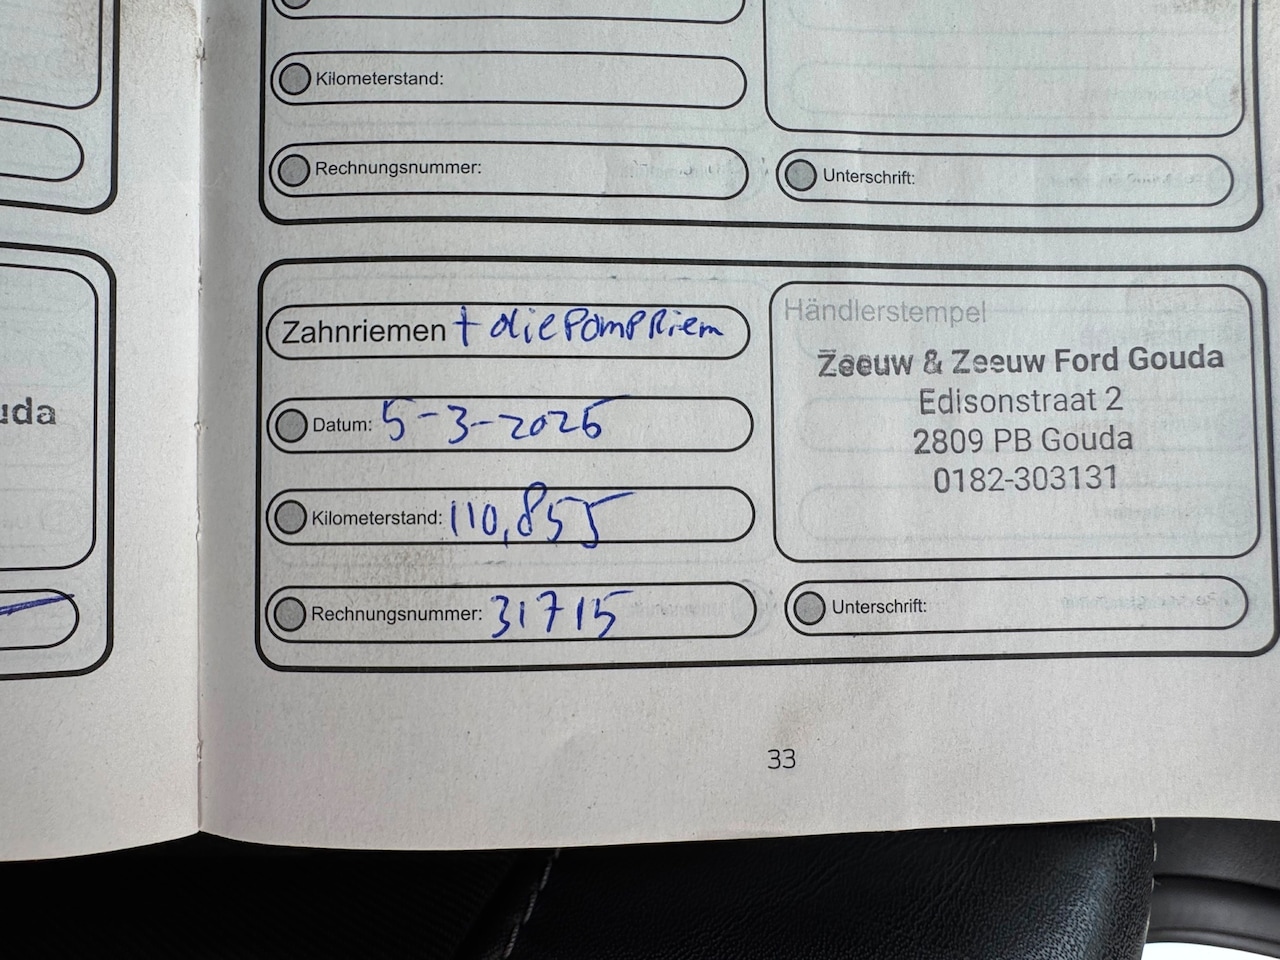 Kilometerstand:
Rechnungsnummer:
Unterschrift:
uda
Zahnriemen + oliepompRiem
Datum: 5-3-2025
Kilometerstand: 110,855
Rechnungsnummer: 31715
Händlerstempel
Zeeuw & Zeeuw Ford Gouda
Edisonstraat 2
2809 PB Gouda
0182-303131
Unterschrift:
33